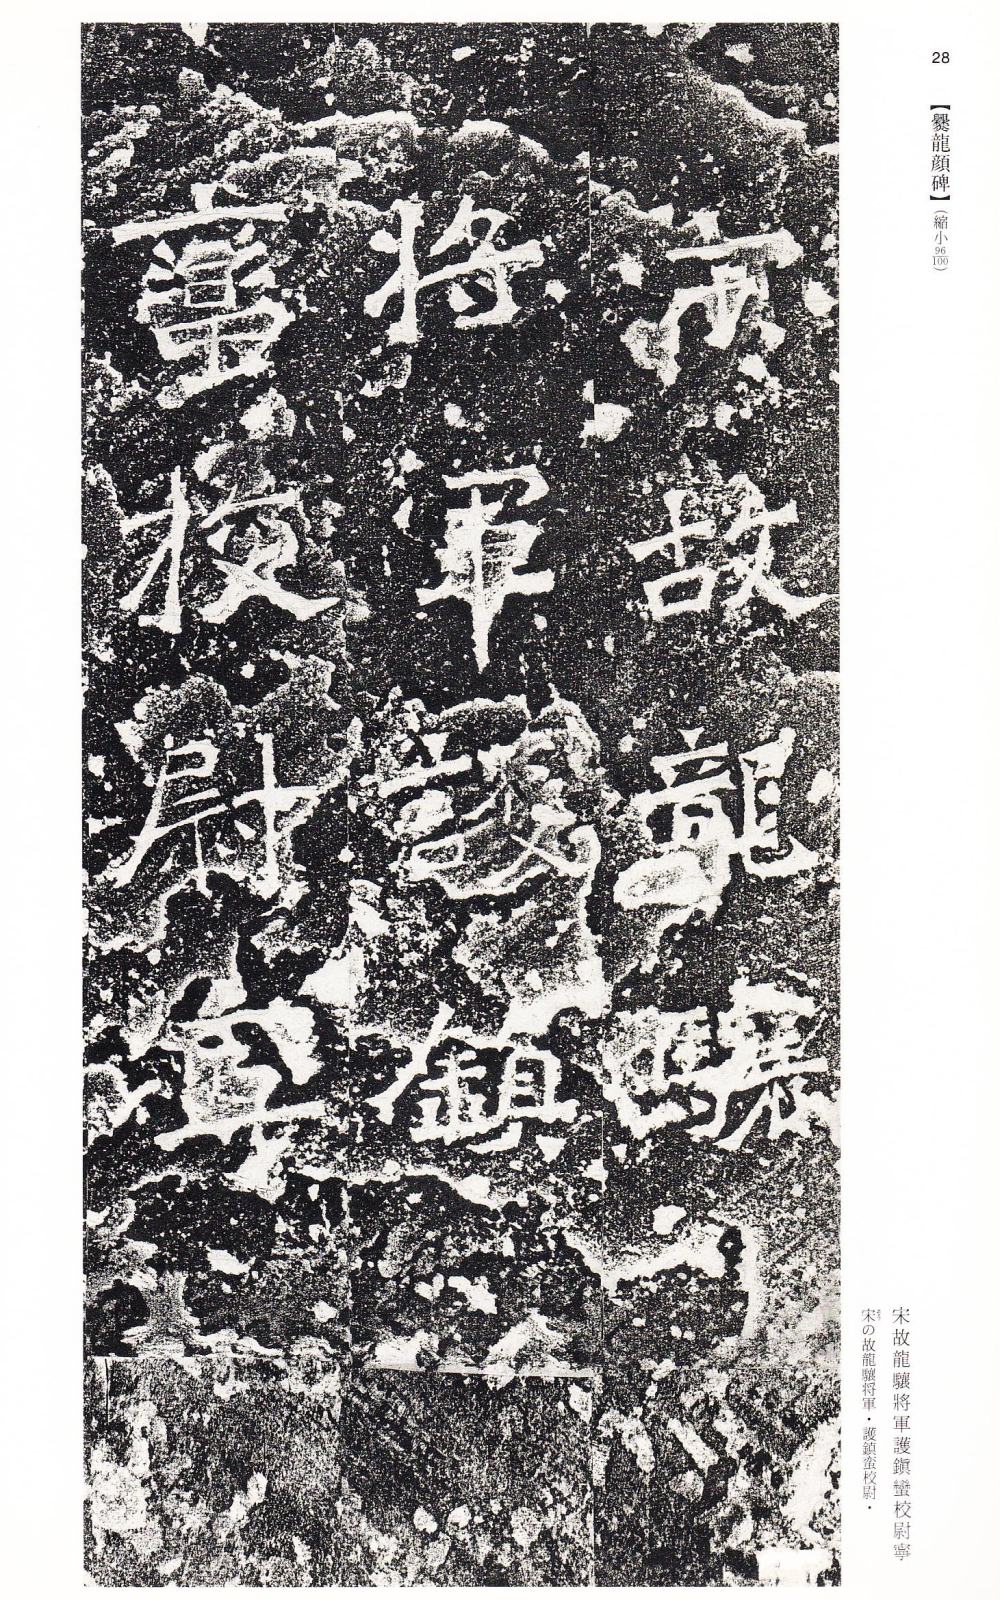 28
【爨龍顔碑】(縮小96/100)
宋故龍驤
將軍護鎭
蠻校尉寧
宋故龍驤將軍護鎭蠻校尉寧
宋の故龍驤将軍・護鎮蛮校尉・